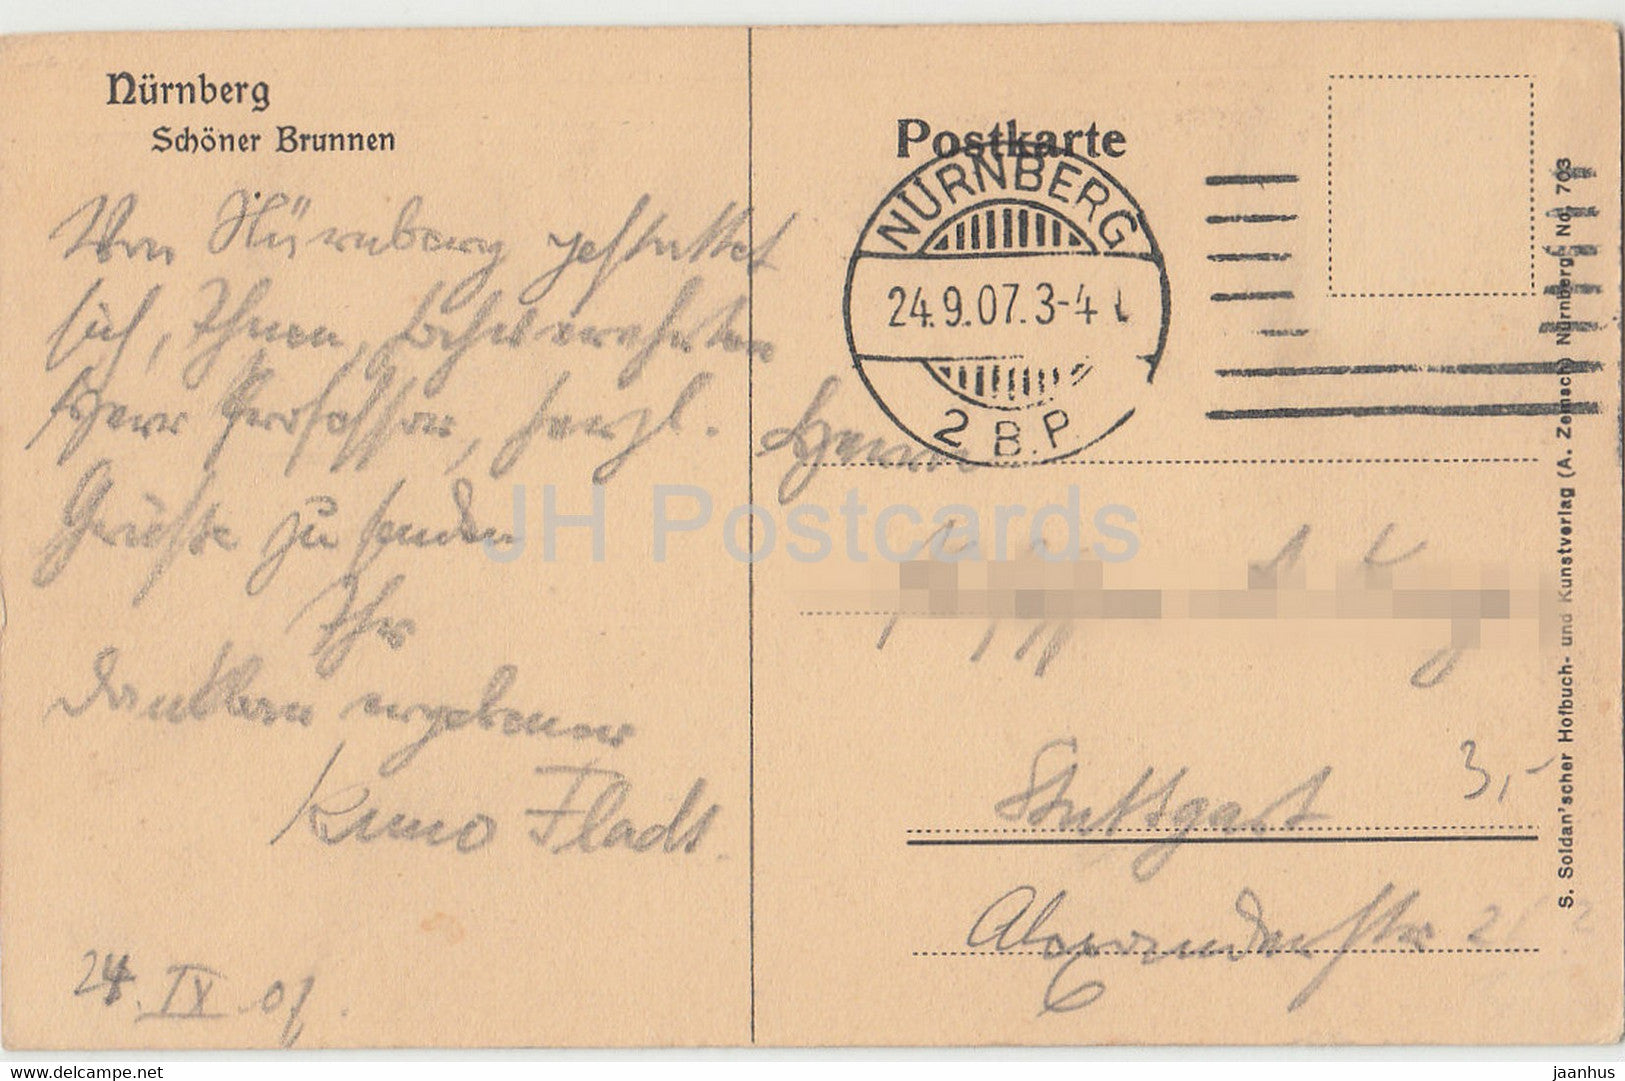 Nürnberg
Schöner Brunnen
Von Nürnberg gestattet
sich, Ihnen, hochverehrter
Herr Professor, herzl.
Grüsse zu senden
Ihr
dankbar ergebener
Kuno Fladt.
24. IX. 07.
Postkarte
NÜRNBERG
24.9.07. 3-4
2 B.P.
Herrn
Stuttgart
3,-
Alexanderstr
S. Soldan'scher Hofbuch- und Kunstverlag (A. Zemsch) Nürnberg. No. 703
JH Postcards
https://www.delcampe.net
jaanhus